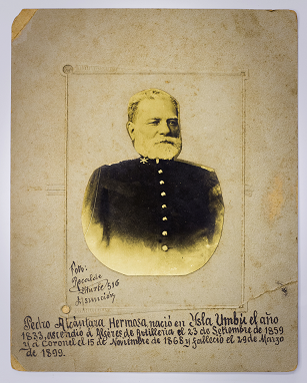 Fot.
Recalde
516
Asunción
Pedro Alcántara Hermosa, nació en Ysla Umbú el año
1833, ascendió a Alferes de Artillería el 23 de Setiembre de 1859
y a Coronel el 15 de Noviembre de 1868 y falleció el 29 de Marzo
de 1899.